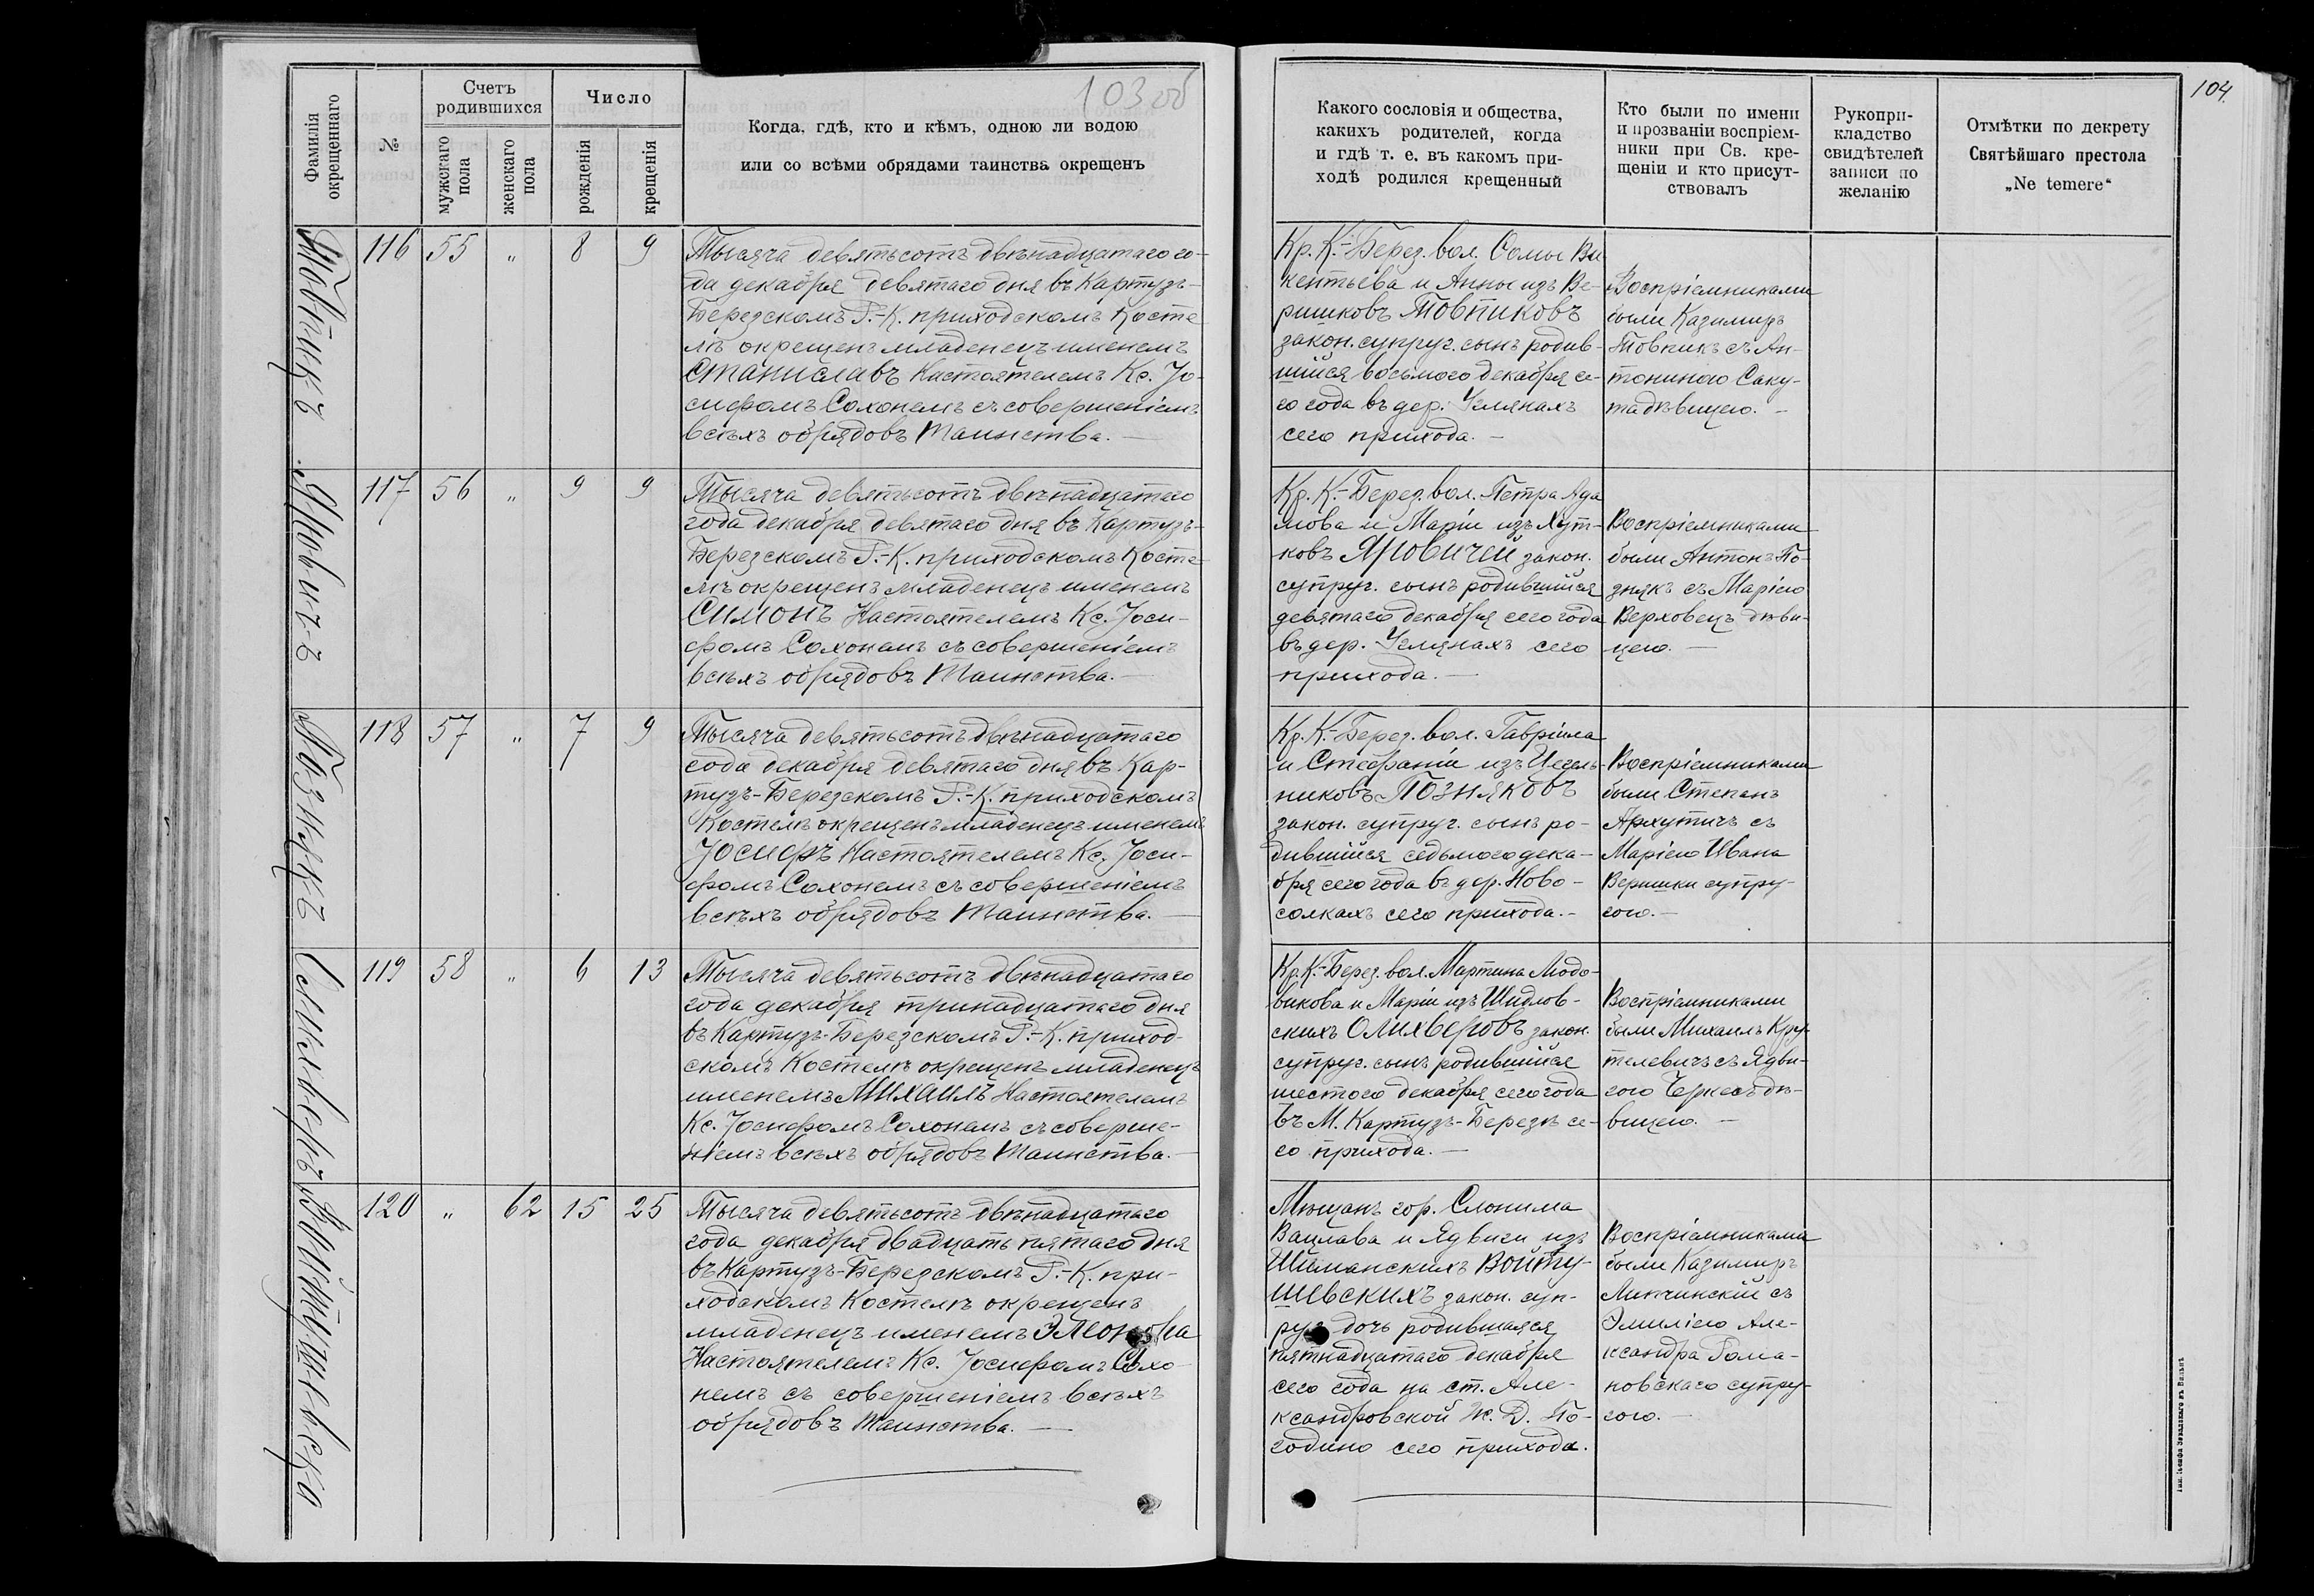 103 об
Фамилія
окрещеннаго
№
Счетъ
родившихся
мужскаго
пола
женскаго
пола
Число
рожденія
крещенія
Когда, гдѣ, кто и кѣмъ, одною ли водою
или со всѣми обрядами таинства окрещенъ
Товпикъ
116 55 „ 8 9
Тысяча девятьсотъ двѣнадцатаго го-
да декабря девятаго дня въ Картузъ-
Березскомъ Р.-К. приходскомъ Косте
лѣ окрещенъ младенецъ именемъ
Станиславъ Настоятелемъ Кс. Іо-
сифомъ Солонемъ съ совершеніемъ
всѣхъ обрядовъ Таинства. —
Яновичъ
117 56 „ 9 9
Тысяча девятьсотъ двѣнадцатаго
года декабря девятаго дня въ Картузъ-
Березскомъ Р.-К. приходскомъ Косте
лѣ окрещенъ младенецъ именемъ
Симонъ Настоятелемъ Кс. Іоси-
фомъ Солонемъ съ совершеніемъ
всѣхъ обрядовъ Таинства. —
Познякъ
118 57 „ 7 9
Тысяча девятьсотъ двѣнадцатаго
года декабря девятаго дня въ Кар-
тузъ-Березскомъ Р.-К. приходскомъ
Костелѣ окрещенъ младенецъ именемъ
Іосифъ Настоятелемъ Кс. Іоси-
фомъ Солонемъ съ совершеніемъ
всѣхъ обрядовъ Таинства. —
Олихверъ
119 58 „ 6 13
Тысяча девятьсотъ двѣнадцатаго
года декабря тринадцатаго дня
въ Картузъ-Березскомъ Р.-К. приход-
скомъ Костелѣ окрещенъ младенецъ
именемъ Михаилъ Настоятелемъ
Кс. Іосифомъ Солонемъ съ соверше-
ніемъ всѣхъ обрядовъ Таинства. —
Войтушевска
120 „ 62 15 25
Тысяча девятьсотъ двѣнадцатаго
года декабря двадцать пятаго дня
въ Картузъ-Березскомъ Р.-К. при-
ходскомъ Костелѣ окрещенъ
младенецъ именемъ Элеонора
Настоятелемъ Кс. Іосифомъ Соло
немъ съ совершеніемъ всѣхъ
обрядовъ Таинства. —
104
Какого сословія и общества,
какихъ родителей, когда
и гдѣ т. е. въ какомъ при-
ходѣ родился крещенный
Кто были по имени
и прозваніи воспріем-
ники при Св. кре-
щеніи и кто присут-
ствовалъ
Рукопри-
кладство
свидѣтелей
записи по
желанію
Отмѣтки по декрету
Святѣйшаго престола
„Ne temere“
Кр. К.-Берез. вол. Ѳомы Ви
кентьева и Анны изъ Ве-
ришковъ Товпиковъ
закон. супруг. сынъ родив-
шійся восьмого декабря се-
го года въ дер. Углянахъ
сего прихода. —
Воспріемниками
были Казимиръ
Товпикъ съ Ан-
тониною Саку-
та дѣвицею. —
Кр. К.-Берез. вол. Петра Ада
мова и Маріи изъ Хут-
ковъ Яновичей закон.
супруг. сынъ родившійся
девятаго декабря сего года
въ дер. Углянахъ сего
прихода. —
Воспріемниками
были Антонъ По-
знякъ съ Маріею
Верховецъ дѣви-
цею. —
Кр. К.-Берез. вол. Гавріила
и Стефаніи изъ Цегель-
никовъ Позняковъ
закон. супруг. сынъ ро-
дившійся седьмого дека-
бря сего года въ дер. Ново-
солкахъ сего прихода. —
Воспріемниками
были Степанъ
Архутичъ съ
Маріею Ивана
Веришки супру-
гою. —
Кр. К.-Берез. вол. Мартина Людо-
викова и Маріи изъ Шидлов-
скихъ Олихверовъ закон.
супруг. сынъ родившійся
шестого декабря сего года
въ М. Картузъ-Березѣ се-
го прихода. —
Воспріемниками
были Михаилъ Кру-
телевичъ съ Ядви-
гою Черкесъ дѣ-
вицею. —
Мѣщанъ гор. Слонима
Вацлава и Ядвиги изъ
Шиманскихъ Войту-
шевскихъ закон. суп-
руг. дочь родившаяся
пятнадцатаго декабря
сего года на ст. Але-
ксандровской Ж. Д. По-
годино сего прихода.
Воспріемниками
были Казимиръ
Липчинскій съ
Эмиліею Але-
ксандра Рома-
новскаго супру-
гою. —